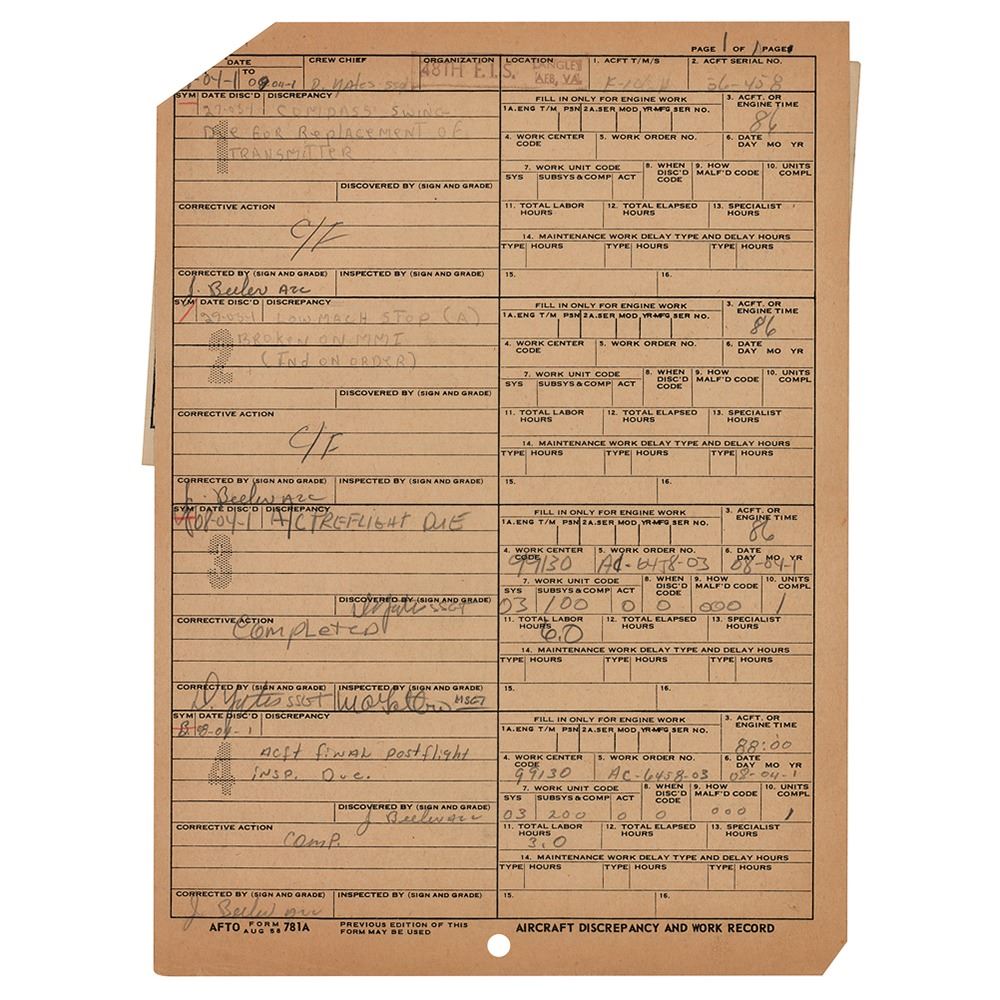 PAGE 1 OF 1 PAGES
DATE CREW CHIEF ORGANIZATION LOCATION 1. ACFT T/M/S 2. ACFT SERIAL NO.
TO 48TH F.I.S. LANGLEY AFB, VA.
SYM DATE DISC'D DISCREPANCY FILL IN ONLY FOR ENGINE WORK 3. ACFT. OR ENGINE TIME
COMPASS SWING 1A.ENG T/M PSN 2A.SER MOD YR-MFG SER NO. 86
1 Due for Replacement of 4. WORK CENTER CODE 5. WORK ORDER NO. 6. DATE DAY MO YR
TRANSMITTER
7. WORK UNIT CODE 8. WHEN DISC'D CODE 9. HOW MALF'D CODE 10. UNITS COMPL
DISCOVERED BY (SIGN AND GRADE) SYS SUBSYS & COMP ACT
CORRECTIVE ACTION 11. TOTAL LABOR HOURS 12. TOTAL ELAPSED HOURS 13. SPECIALIST HOURS
C/F
14. MAINTENANCE WORK DELAY TYPE AND DELAY HOURS
TYPE HOURS TYPE HOURS TYPE HOURS
CORRECTED BY (SIGN AND GRADE) INSPECTED BY (SIGN AND GRADE) 15. 16.
J. Beeler A2C
SYM DATE DISC'D DISCREPANCY FILL IN ONLY FOR ENGINE WORK 3. ACFT. OR ENGINE TIME
LOW MACH STOP (A) 1A.ENG T/M PSN 2A.SER MOD YR-MFG SER NO. 86
2 BROKEN ON MMI 4. WORK CENTER CODE 5. WORK ORDER NO. 6. DATE DAY MO YR
(Ind ON ORDER)
7. WORK UNIT CODE 8. WHEN DISC'D CODE 9. HOW MALF'D CODE 10. UNITS COMPL
DISCOVERED BY (SIGN AND GRADE) SYS SUBSYS & COMP ACT
CORRECTIVE ACTION 11. TOTAL LABOR HOURS 12. TOTAL ELAPSED HOURS 13. SPECIALIST HOURS
C/F
14. MAINTENANCE WORK DELAY TYPE AND DELAY HOURS
TYPE HOURS TYPE HOURS TYPE HOURS
CORRECTED BY (SIGN AND GRADE) INSPECTED BY (SIGN AND GRADE) 15. 16.
J. Beeler A2C
SYM DATE DISC'D DISCREPANCY FILL IN ONLY FOR ENGINE WORK 3. ACFT. OR ENGINE TIME
08-04-1 A/C PREFLIGHT DUE 1A.ENG T/M PSN 2A.SER MOD YR-MFG SER NO. 86
3 4. WORK CENTER CODE 5. WORK ORDER NO. 6. DATE DAY MO YR
99130 AC-6458-03 08-04-1
7. WORK UNIT CODE 8. WHEN DISC'D CODE 9. HOW MALF'D CODE 10. UNITS COMPL
SYS SUBSYS & COMP ACT
DISCOVERED BY (SIGN AND GRADE) SSGT 03 100 0 0 000 1
CORRECTIVE ACTION 11. TOTAL LABOR HOURS 12. TOTAL ELAPSED HOURS 13. SPECIALIST HOURS
COMPLETED 6.0
14. MAINTENANCE WORK DELAY TYPE AND DELAY HOURS
TYPE HOURS TYPE HOURS TYPE HOURS
CORRECTED BY (SIGN AND GRADE) INSPECTED BY (SIGN AND GRADE) 15. 16.
SSGT MSGT
SYM DATE DISC'D DISCREPANCY FILL IN ONLY FOR ENGINE WORK 3. ACFT. OR ENGINE TIME
B 08-04-1 1A.ENG T/M PSN 2A.SER MOD YR-MFG SER NO. 88:00
4 Acft final postflight 4. WORK CENTER CODE 5. WORK ORDER NO. 6. DATE DAY MO YR
INSP. Due. 99130 AC-6458-03 08-04-1
7. WORK UNIT CODE 8. WHEN DISC'D CODE 9. HOW MALF'D CODE 10. UNITS COMPL
DISCOVERED BY (SIGN AND GRADE) SYS SUBSYS & COMP ACT
J Beeler A2C 03 200 0 0 000 1
CORRECTIVE ACTION 11. TOTAL LABOR HOURS 12. TOTAL ELAPSED HOURS 13. SPECIALIST HOURS
comp. 3.0
14. MAINTENANCE WORK DELAY TYPE AND DELAY HOURS
TYPE HOURS TYPE HOURS TYPE HOURS
CORRECTED BY (SIGN AND GRADE) INSPECTED BY (SIGN AND GRADE) 15. 16.
J Beeler A2C
AFTO FORM AUG 58 781A PREVIOUS EDITION OF THIS FORM MAY BE USED AIRCRAFT DISCREPANCY AND WORK RECORD